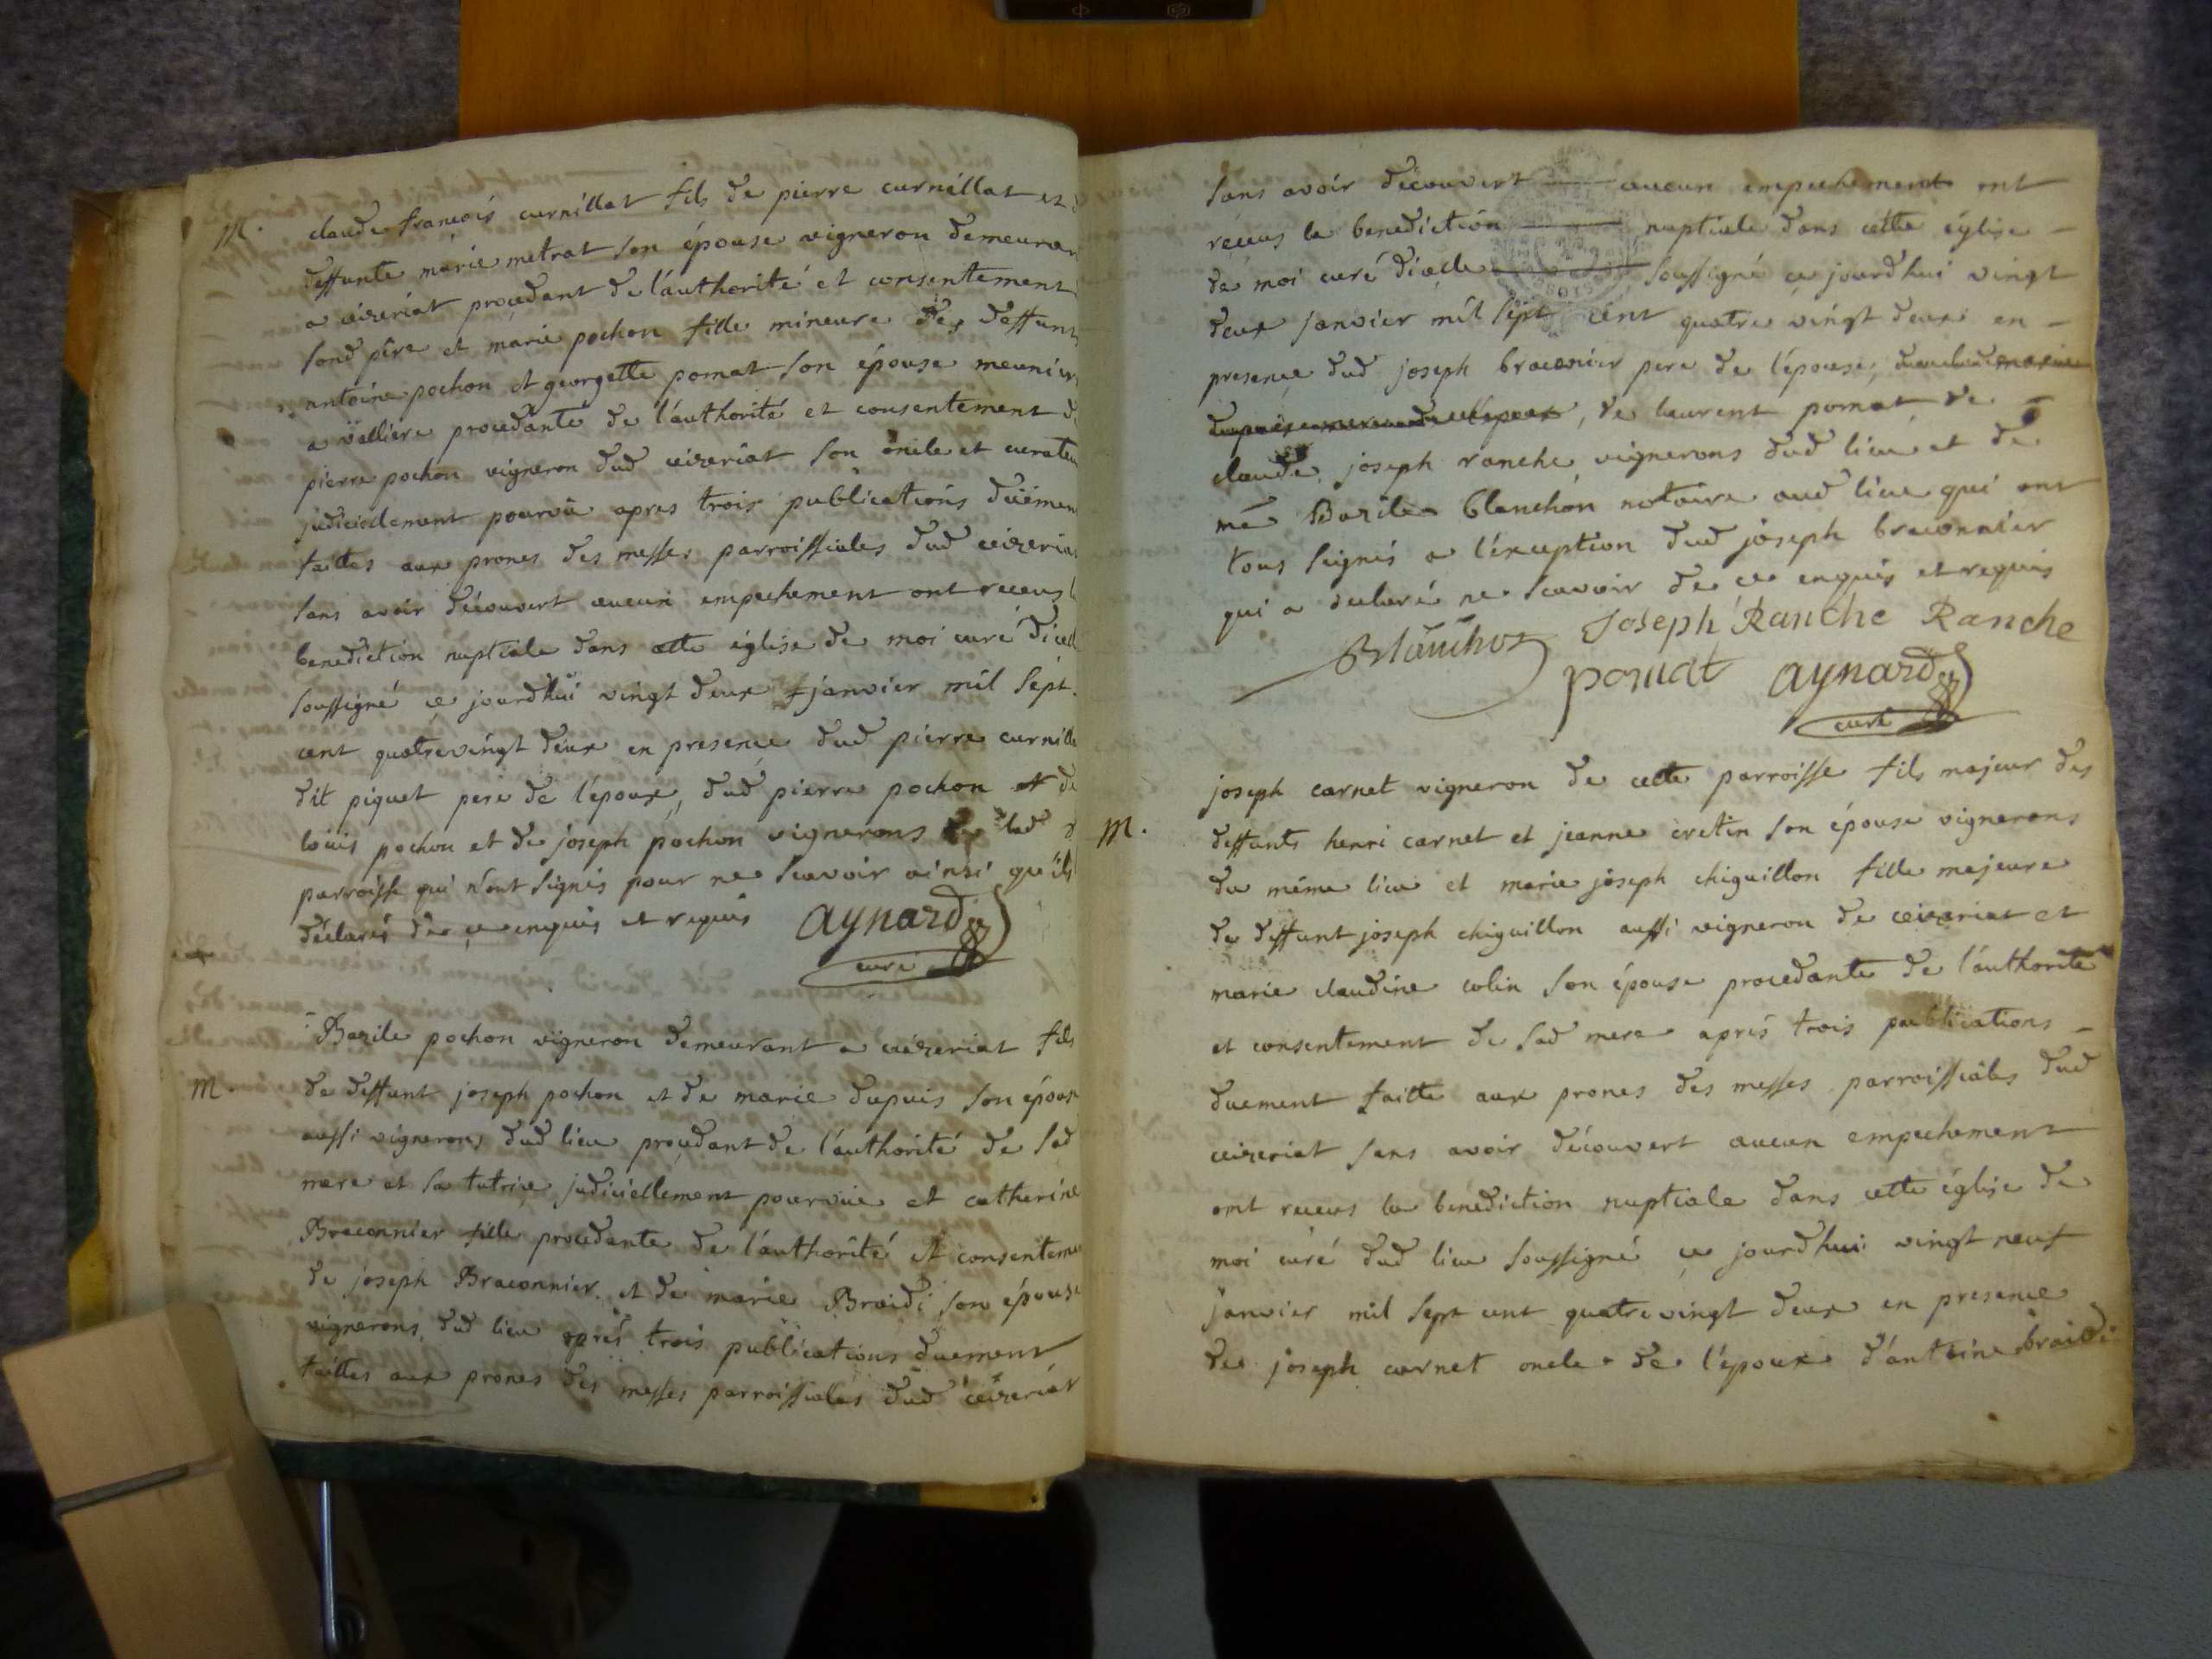 M. claude francois curnillat fils de pierre curnillat et d
deffunte marie metrat son épouse vigneron demeuran
a ceizeriat procedant de l'authorité et consentement
sond pêre et marie pochon fille mineure des deffunts
antoine pochon et georgette pomat son épouse meunier
a vallière procedante de l'authorité et consentement d
pierre pochon vigneron dud ceizeriat son oncle et curateu
judiciellement pourvû apres trois publications düemen
faittes aux prones des messes parroissiales dud ceizeriat
sans avoir découvert aucun empechement ont receus l
benediction nuptiale dans cette église de moi curé d'icell
soussigné ce jourdhui vingt deux janvier mil sept
cent quatrevingt deux en presence dud pierre curnilla
dit piquet pere de l'époux, dud pierre pochon et de
louis pochon et de joseph pochon vignerons de lad
parroisse qui n'ont signés pour ne scavoir ainsi qu'ils
déclarés de ce enquis et requis aynard
curé
Bazile pochon vigneron demeurant a ceizeriat fils
M. de deffunt joseph pochon et de marie dupuis son épouse
aussi vignerons dud lieu procedant de l'authorité de sad
mere et sa tutrice judiciellement pourvüe et catherine
Braconnier fille procedante de l'authorité et consentemen
de joseph Braconnier et de marie Braidi son épouse
vignerons dud lieu après trois publications duement
faittes aux prones des messes parroissiales dud ceizeriat
sans avoir découvert aucun empechement ont
receus la benediction nuptiale dans cette église
de moi curé d'icelle soussigné ce jourd'hui vingt
deux janvier mil sept cent quatre vingt deux en
presence dud joseph braconier pere de l'épouse,
de laurent pomat de
claude joseph ranche vignerons dud lieu et de
me Bazile Blanchon notaire aud lieu qui ont
tous signés a l'éxception dud joseph braconnier
qui a declaré ne scavoir de ce enquis et requis
Blanchon Joseph Ranche Ranche
pomat aynard
curé
joseph carnet vigneron de cette parroisse fils majeur des
M. deffunts henri carnet et jeanne cretin son épouse vignerons
du même lieu et marie joseph chiguillon fille majeure
de deffunt joseph chiguillon aussi vigneron de ceizeriat et
marie claudine colin son épouse procedante de l'authorité
et consentement de sad mere aprés trois publications
duement faitte aux prones des messes parroissiales dud
ceizeriat sans avoir découvert aucun empechement
ont receus la benediction nuptiale dans cette église de
moi curé dud lieu soussigné ce jourdhui vingt neuf
janvier mil sept cent quatrevingt deux en presence
de joseph carnet oncle de l'époux d'antoine braidi